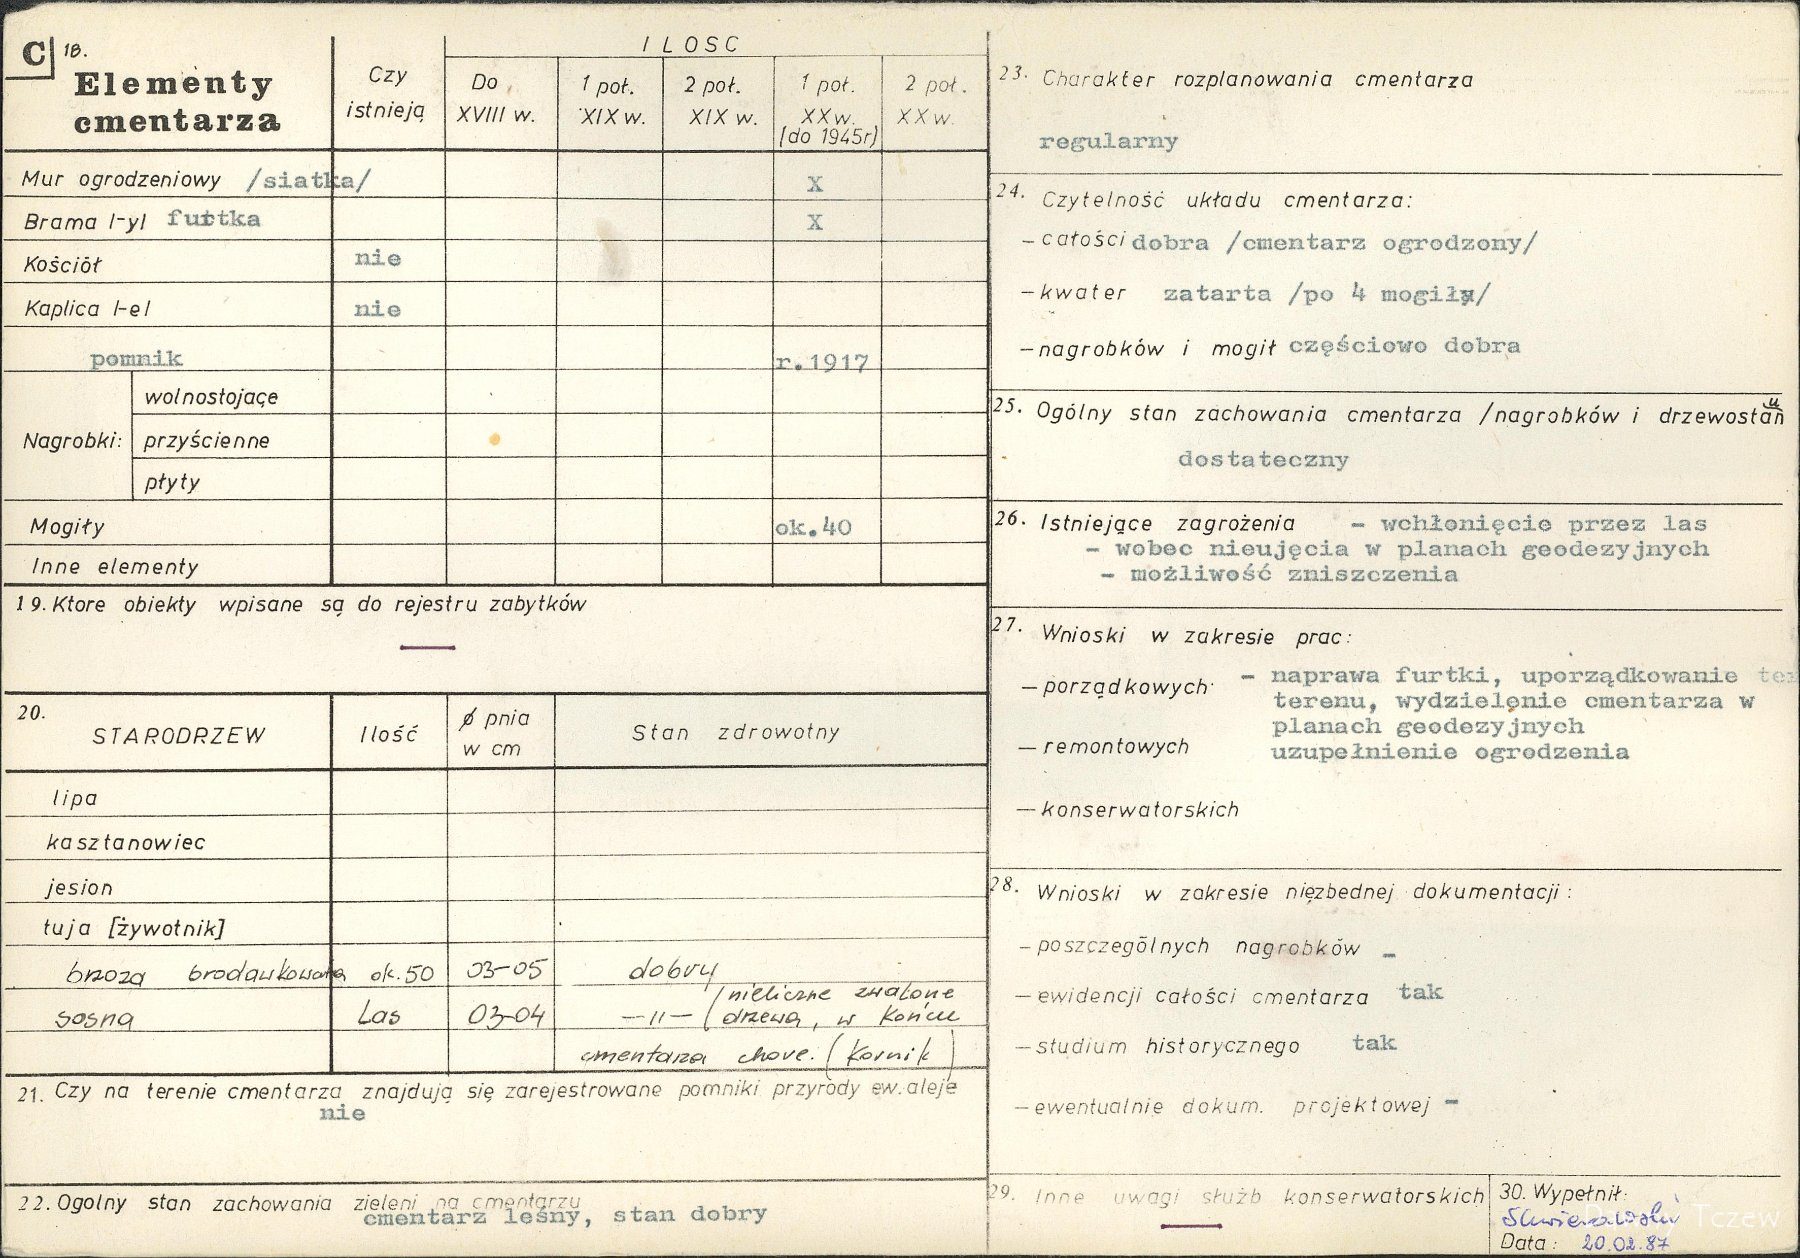 C 18.
Elementy
cmentarza
Czy
istnieją
ILOSC
Do
XVIII w.
1 poł.
XIX w.
2 poł.
XIX w.
1 poł.
XX w.
(do 1945r)
2 poł.
XX w.
Mur ogrodzeniowy /siatka/ X
Brama /-y/ furtka X
Kościół nie
Kaplica /-e/ nie
pomnik r.1917
Nagrobki:
wolnostojące
przyścienne
płyty
Mogiły ok.40
Inne elementy
19. Ktore obiekty wpisane są do rejestru zabytków
—
20.
STARODRZEW
Ilość
ø pnia
w cm
Stan zdrowotny
lipa
kasztanowiec
jesion
tuja [żywotnik]
brzoza brodawkowata ok. 50 03-05 dobry
sosna Las 03-04 —"— (nieliczne zwalone
drzewa, w końcu
cmentarza chore. (kornik)
21. Czy na terenie cmentarza znajdują się zarejestrowane pomniki przyrody ew. aleje
nie
22. Ogolny stan zachowania zieleni na cmentarzu
cmentarz leśny, stan dobry
23. Charakter rozplanowania cmentarza
regularny
24. Czytelność układu cmentarza:
– całości dobra /cmentarz ogrodzony/
– kwater zatarta /po 4 mogiły/
– nagrobków i mogił częściowo dobra
25. Ogólny stan zachowania cmentarza /nagrobków i drzewostanu
dostateczny
26. Istniejące zagrożenia - wchłonięcie przez las
- wobec nieujęcia w planach geodezyjnych
- możliwość zniszczenia
27. Wnioski w zakresie prac:
– porządkowych - naprawa furtki, uporządkowanie te
terenu, wydzielenie cmentarza w
planach geodezyjnych
– remontowych uzupełnienie ogrodzenia
– konserwatorskich
28. Wnioski w zakresie niezbednej dokumentacji:
– poszczególnych nagrobków -
– ewidencji całości cmentarza tak
– studium historycznego tak
– ewentualnie dokum. projektowej -
29. Inne uwagi służb konserwatorskich
—
30. Wypełnił:
Data: 20.02.87
Tczew